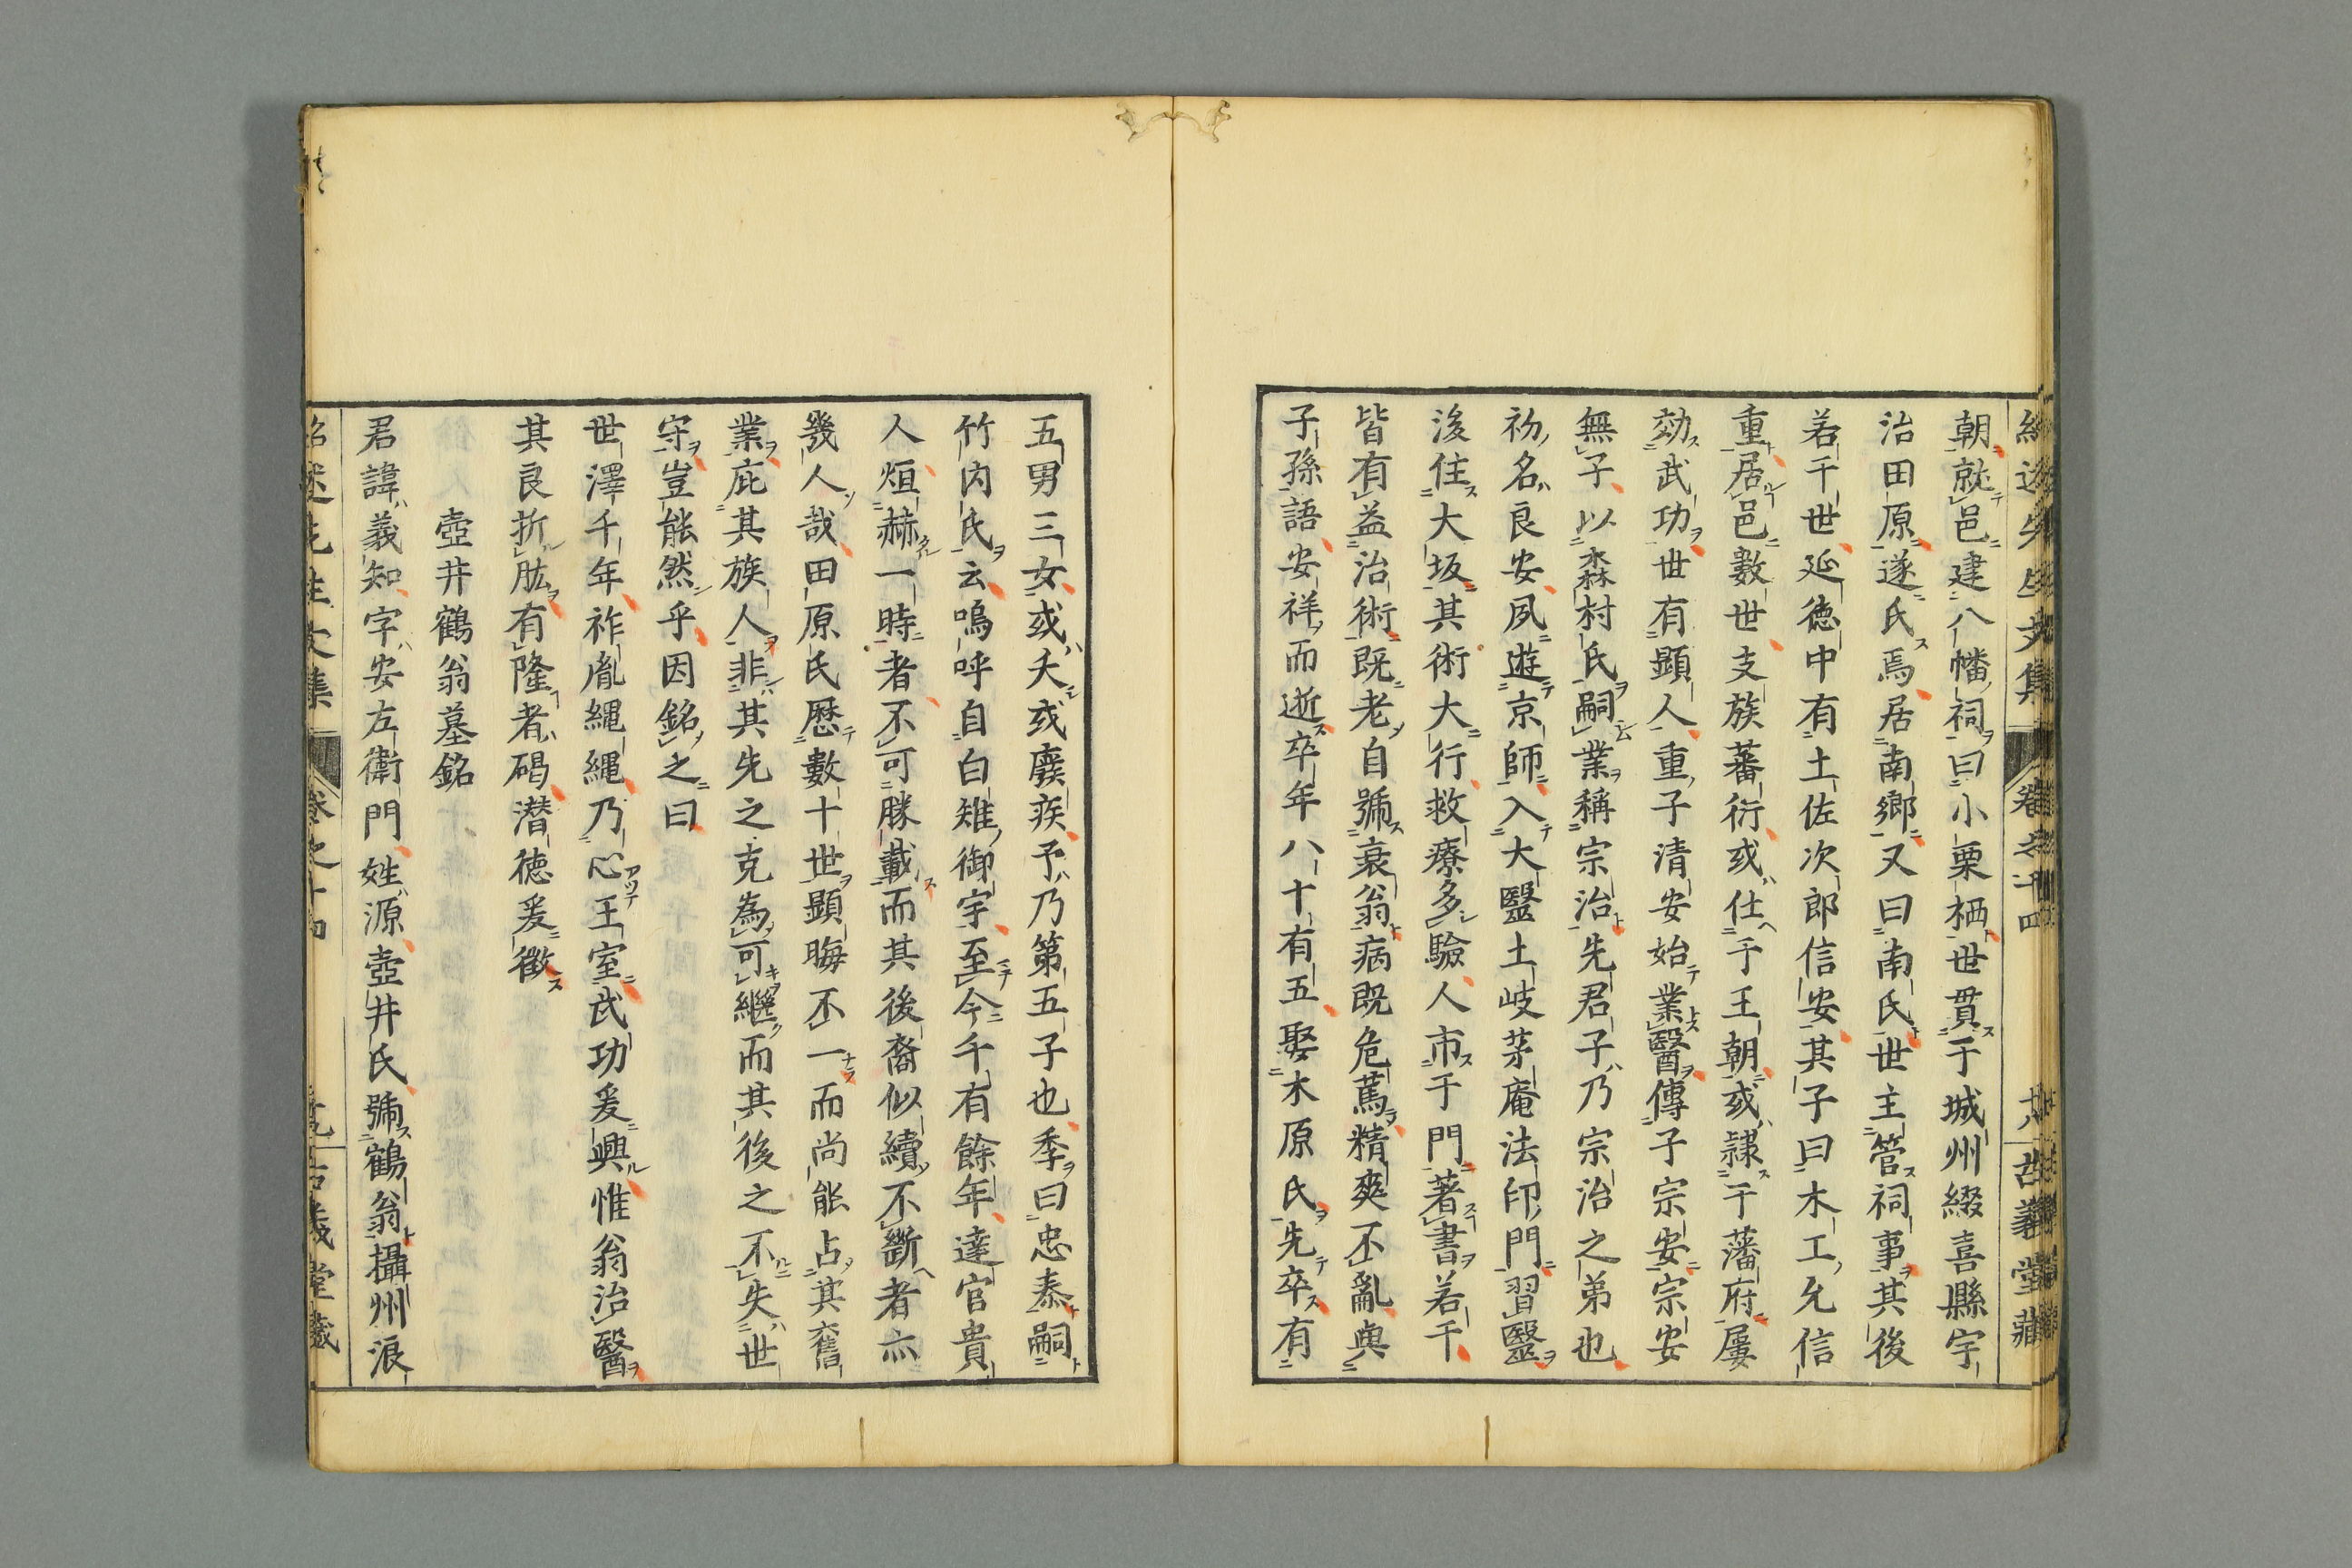 紹述先生文集 卷之十四 古義堂藏
朝就邑建八幡祠曰小栗栖世貫于城州綴喜縣宇
治田原遂氏焉居南鄉又曰南氏世主管祠事其後
若干世延徳中有土佐次郎信安其子曰木工允信
重居邑數世支族蕃衍或仕于王朝或隷于藩府屢
効武功世有顕人重子清安始業醫傳子宗安宗安
無子以森村氏嗣業稱宗治先君子乃宗治之弟也
初名良安夙遊京師入大毉土岐茅庵法印門習毉
後住大坂其術大行救療多驗人市于門著書若干
皆有益治術既老自號衰翁病既危蔿精爽不亂與
子孫語安祥而逝卒年八十有五娶木原氏先卒有
五男三女或夭或癈疾予乃第五子也季曰忠泰嗣
竹内氏云嗚呼自白雉御宇至今千有餘年達官貴
人烜赫一時者不可勝載而其後裔似續不斷者亦
幾人哉田原氏歴數十世顕晦不一而尚能占其舊
業庇其族人非其先之克為可繼而其後之不失世
守豈能然乎因銘之曰
世澤千年祚胤繩繩乃心王室武功爰興惟翁治醫
其良折肱有隆者碣潜徳爰徴
壺井鶴翁墓銘
君諱義知字安左衛門姓源壺井氏號鶴翁攝州浪
紹述先生文集 卷之十四 古義堂藏